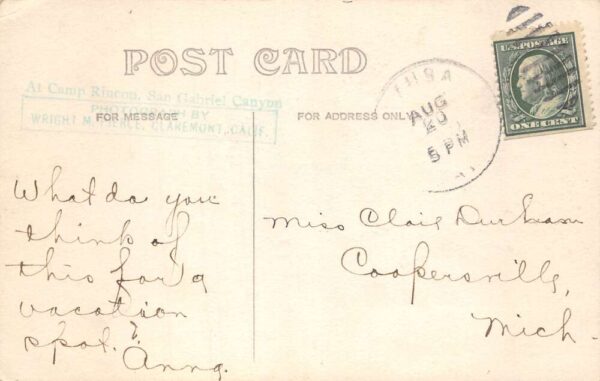 POST CARD
At Camp Rincon, San Gabriel Canyon
PHOTOGRAPH BY
WRIGHT M. PIERCE, CLAREMONT, CALIF.
FOR MESSAGE
FOR ADDRESS ONLY
AUG
20
5 PM
U.S. POSTAGE
ONE CENT
What do you
think of
this for a
vacation
spot?
Anna.
Miss Clair Durham
Coopersville,
Mich.